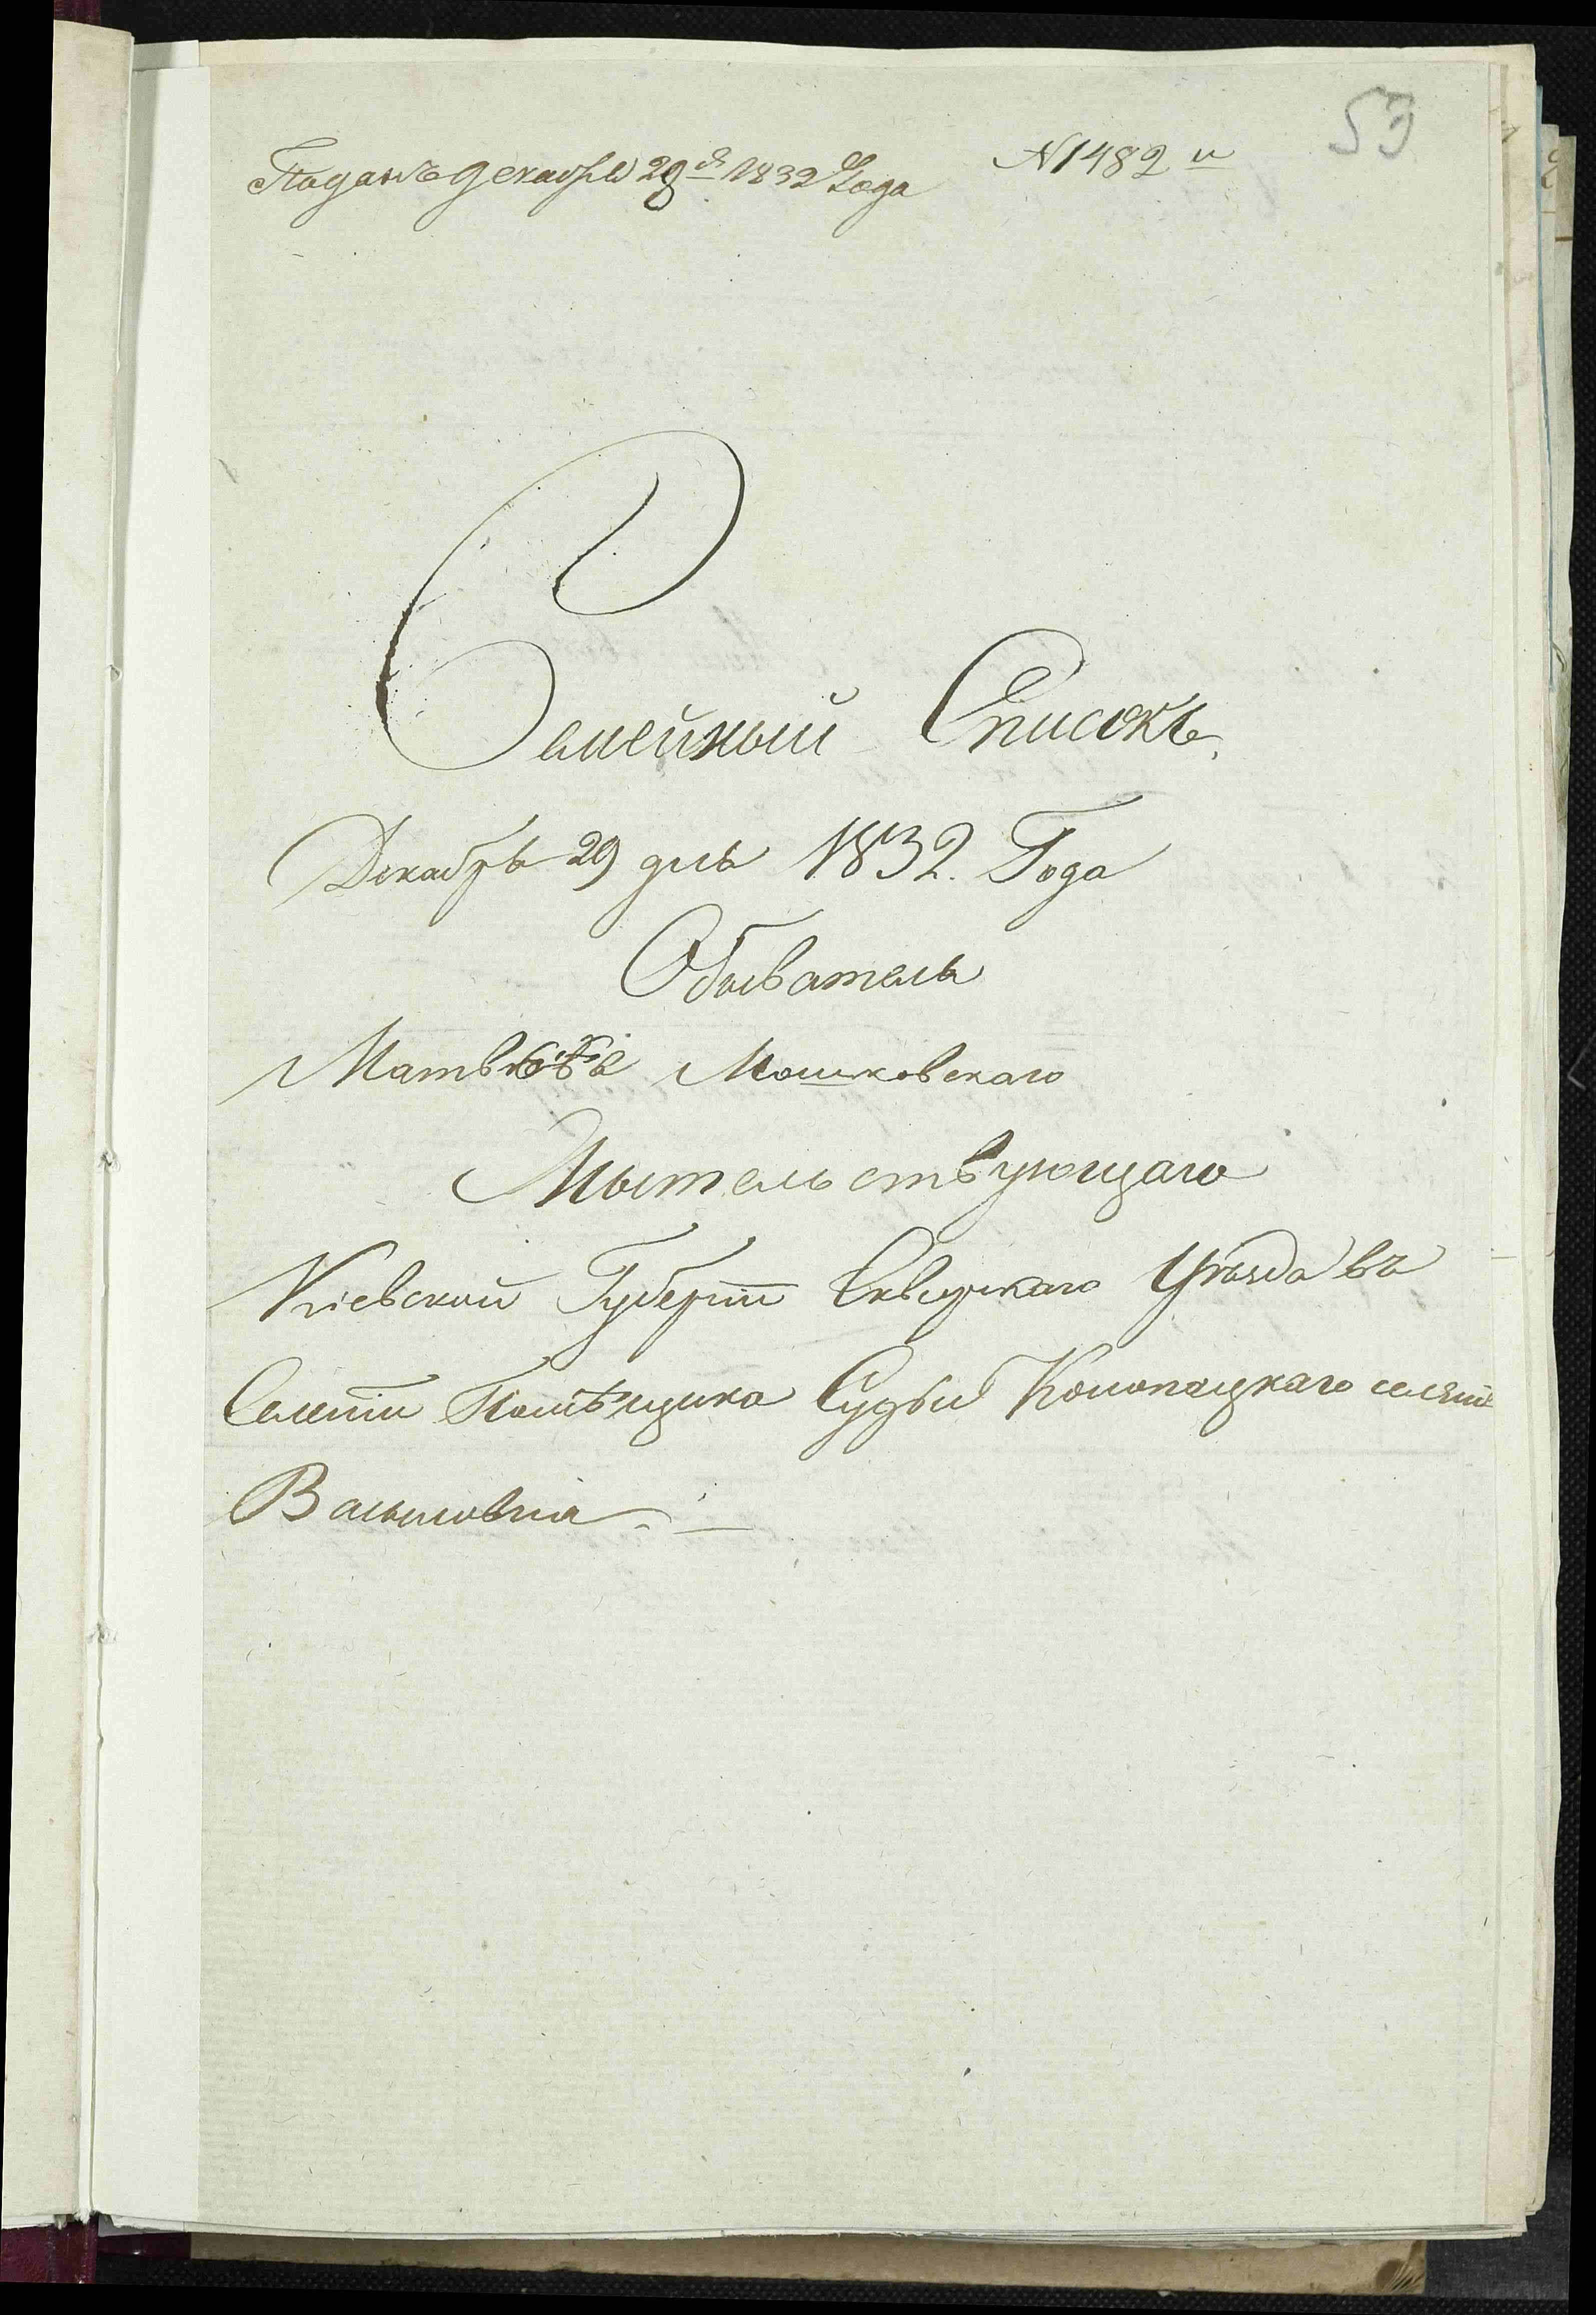 53
Поданъ декабря 29 д. 1832 Года №1482 и
Семейный Списокъ
Декабрь 29 днь 1832. Года
Обыватель
Мошковскаго
Жытельствующаго
Кіевской Губерніи Сквирскаго Уѣзда въ
Селеніи Помѣщика Судьи Конопацкаго селеніи